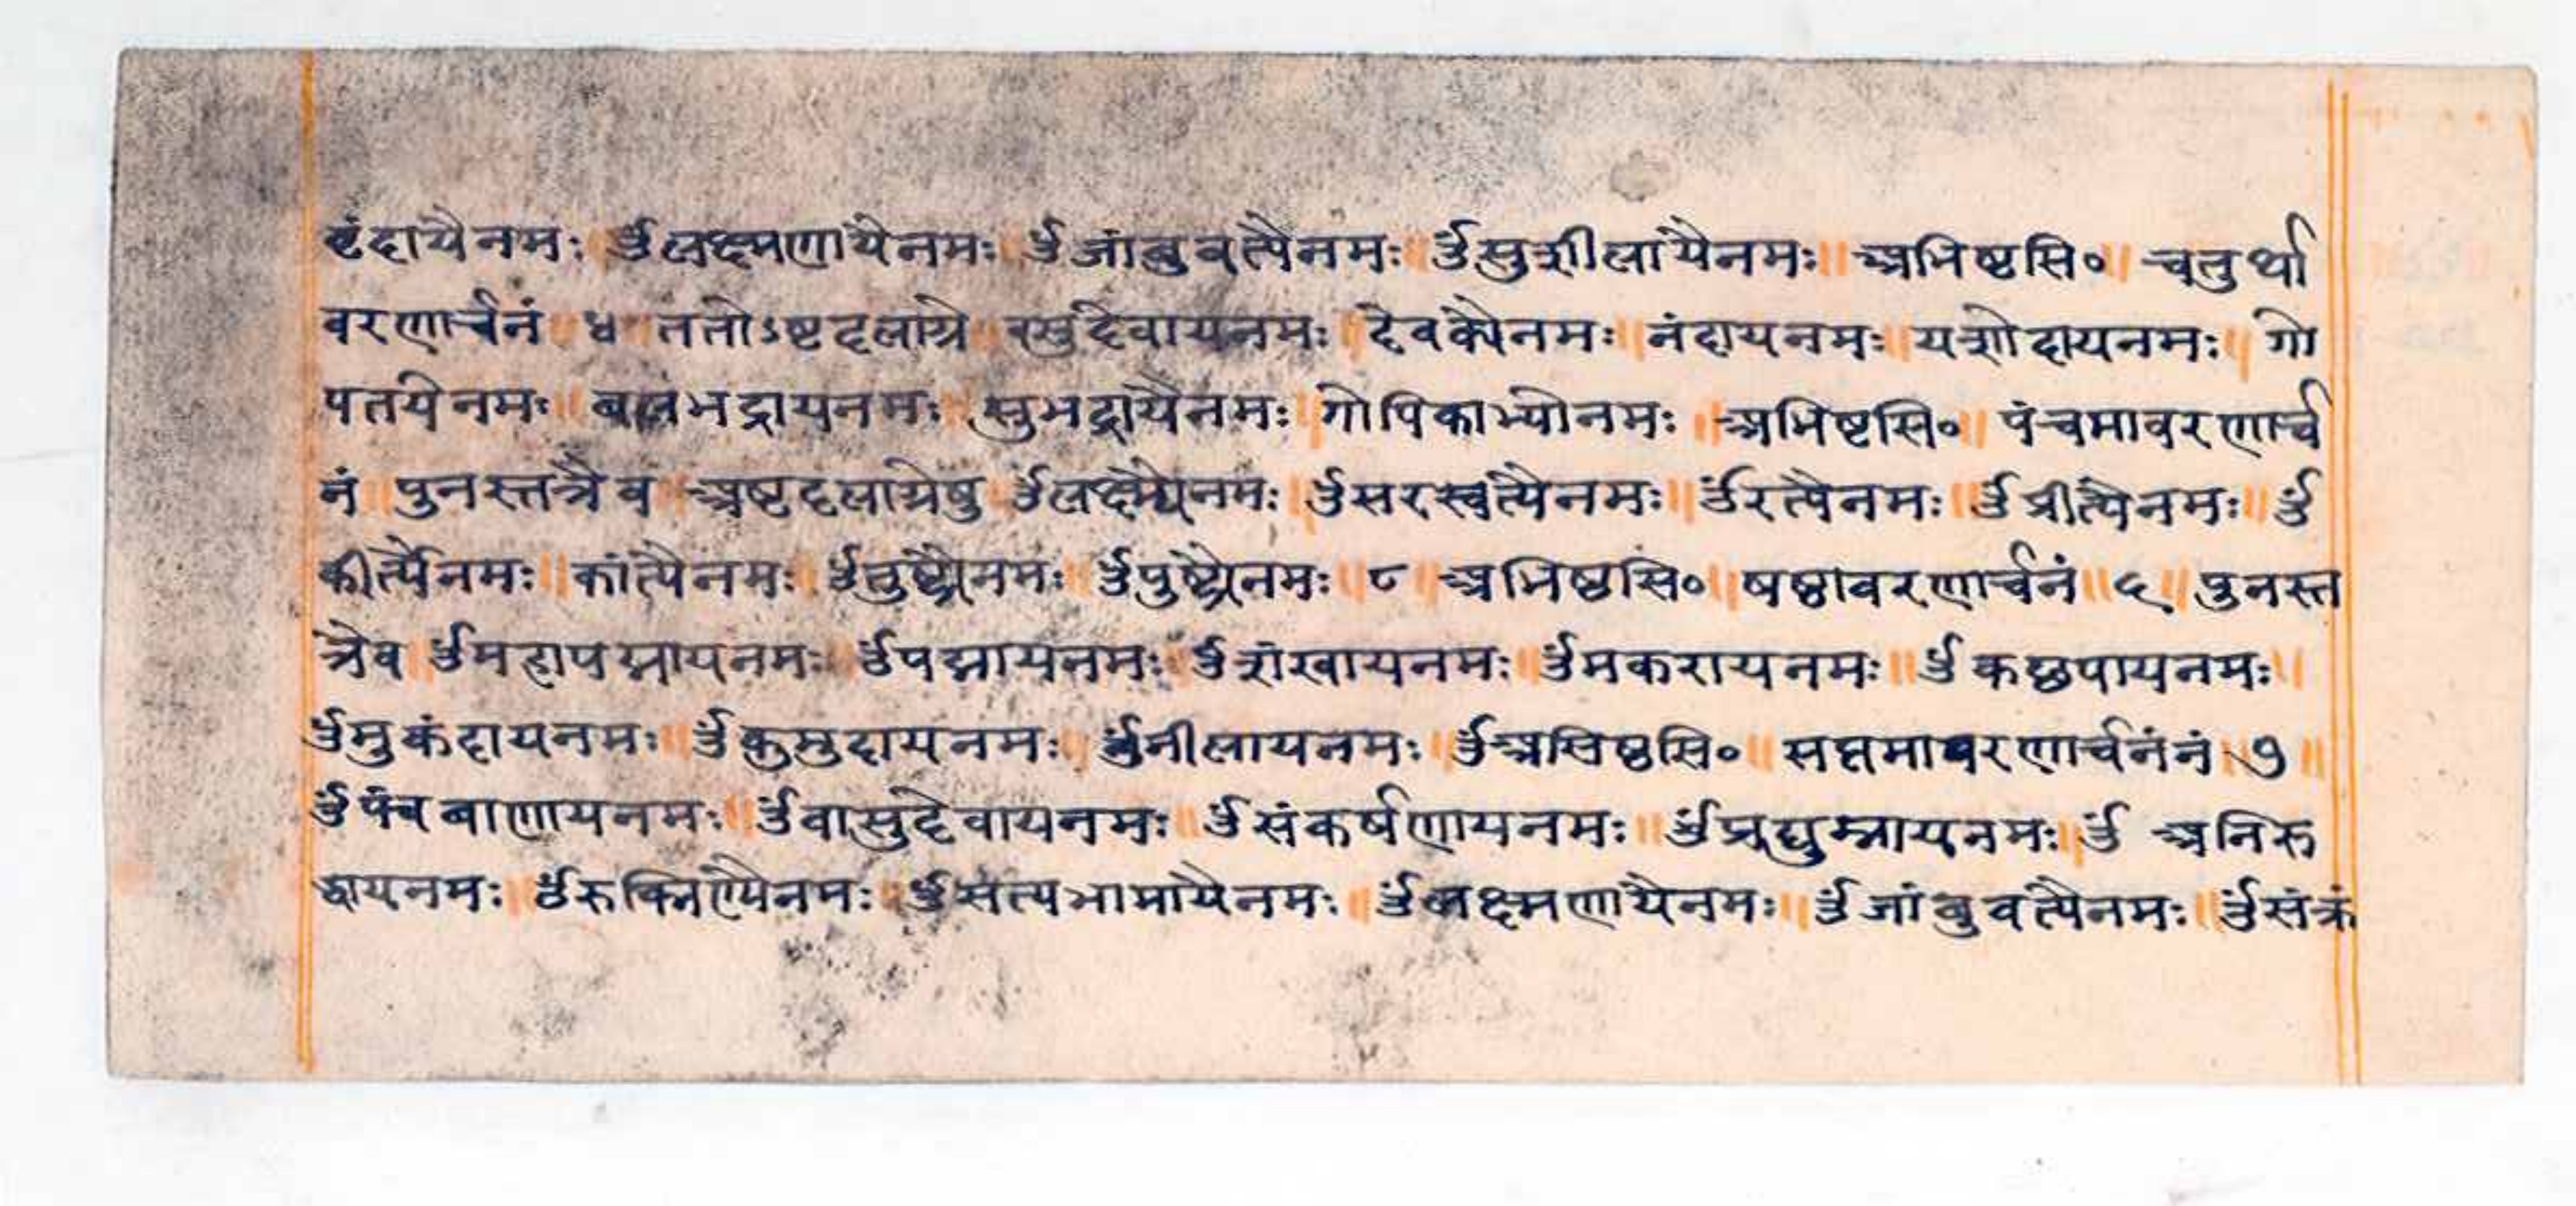 वृंदायैनमः ॐलक्ष्मणायैनमः ॐजांबुवत्यैनमः ॐसुशीलायैनमः॥ अभिष्टसि०॥ चतुर्था
वरणार्चनं ४ ततोऽष्टदलाग्रे वसुदेवायनमः देवक्यैनमः॥ नंदायनमः॥ यशोदायनमः॥ गो
पतयेनमः॥ बलभद्रायनमः॥ सुभद्रायैनमः॥ गोपिकाभ्योनमः॥ अभिष्टसि०॥ पंचमावरणार्च
नं॥ पुनस्तत्रैव अष्टदलाग्रेषु ॐलक्ष्म्यैनमः॥ ॐसरस्वत्यैनमः॥ ॐरत्यैनमः॥ ॐप्रीत्यैनमः॥ ॐ
कीर्त्यैनमः॥ कांत्यैनमः॥ ॐतुष्ट्यैनमः॥ ॐपुष्ट्यैनमः॥ ८॥ अभिष्ठसि०॥ षष्ठावरणार्चनं॥ ६॥ पुनस्त
त्रैव॥ ॐमहापद्मायनमः॥ ॐपद्मायनमः॥ ॐशंखायनमः॥ ॐमकरायनमः॥ ॐकछपायनमः॥
ॐमुकंदायनमः॥ ॐकुमुदायनमः॥ ॐनीलायनमः॥ ॐअभिष्ठसि०॥ सप्तमावरणार्चनंनं॥ ७॥
ॐपंचबाणायनमः॥ ॐवासुदेवायनमः॥ ॐसंकर्षणायनमः॥ ॐप्रद्युम्नायनमः॥ ॐ अनिरु
द्धायनमः॥ ॐरुक्निण्यैनमः॥ ॐसत्यभामायैनमः॥ ॐलक्ष्मणायैनमः॥ ॐजांबुवत्यैनमः॥ ॐसंक्रं